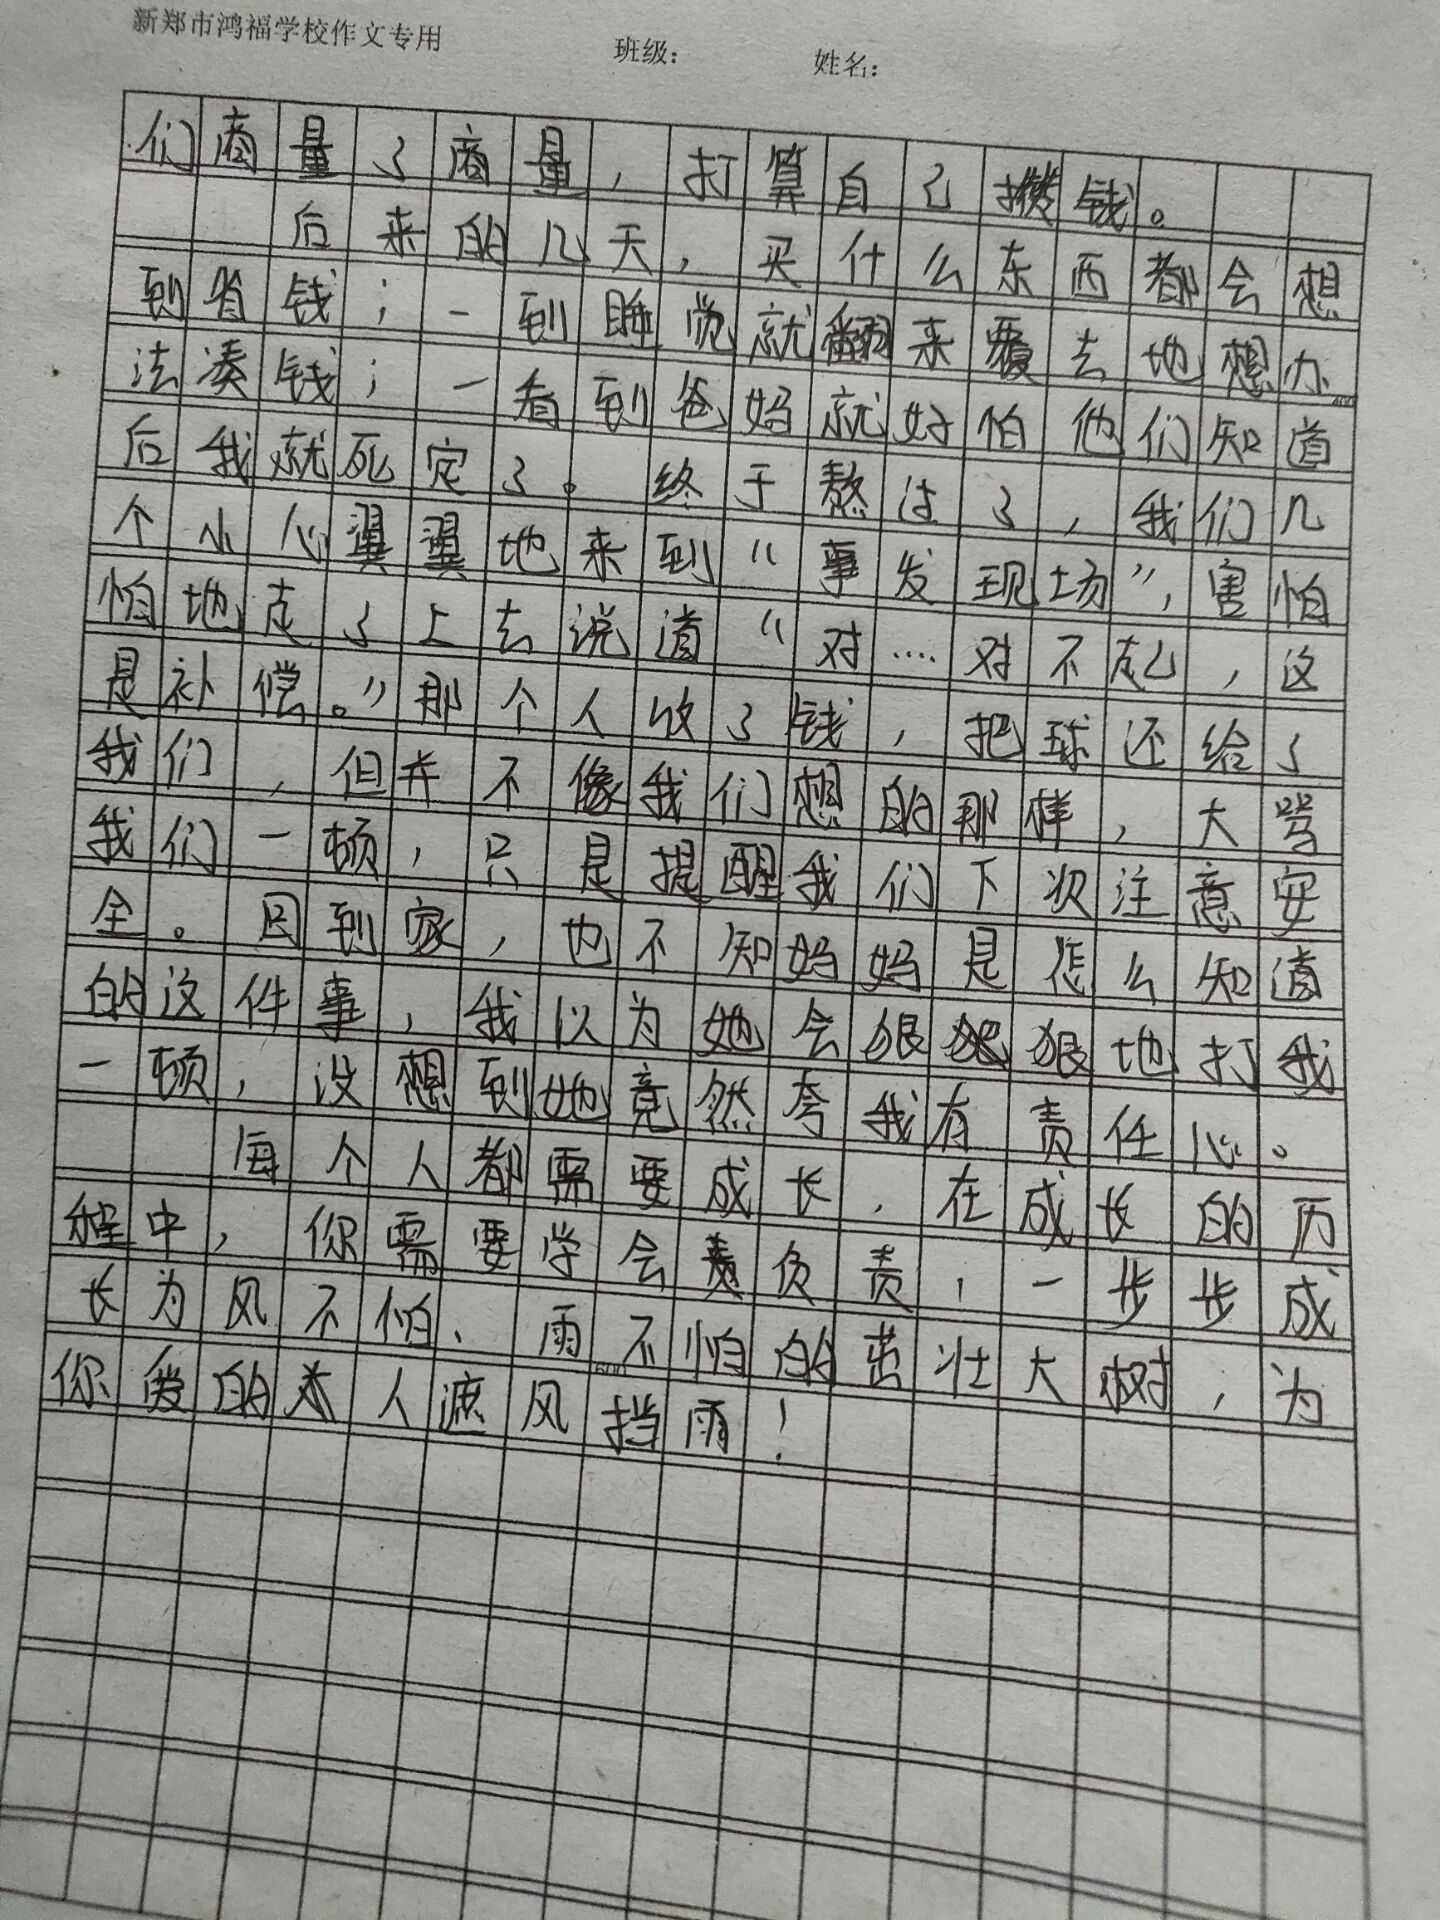 新郑市鸿福学校作文专用 班级： 姓名：
们商量了商量，打算自己攒钱。
后来的几天，买什么东西都会想
到省钱；一到睡觉就翻来覆去地想办
法凑钱；一看到爸妈就好怕他们知道
后我就死定了。终于熬过了，我们几
个小心翼翼地来到“事发现场”，害怕
怕地走了上去说道“对....对不起，这
是补偿。”那个人收了钱，把球还给了
我们，但并不像我们想的那样，大骂
我们一顿，只是提醒我们下次注意安
全。回到家，也不知妈妈是怎么知道
的这件事，我以为她会狠狠地打我
一顿，没想到她竟然夸我有责任心。
每个人都需要成长，在成长的历
程中，你需要学会负责，一步步成
长为风不怕、雨不怕的茁壮大树，为
600
你爱的人遮风挡雨！